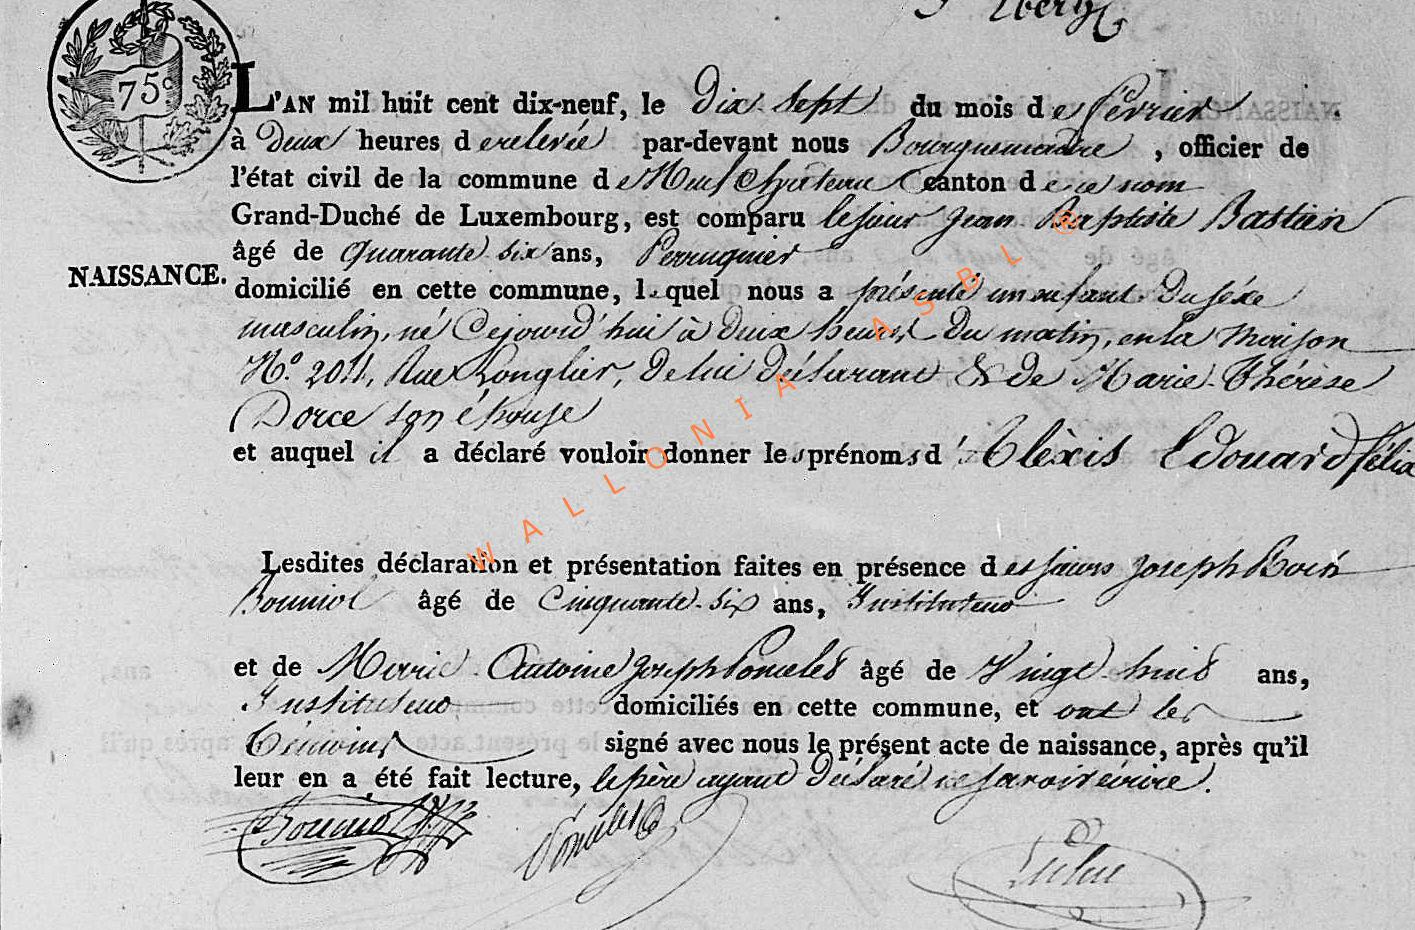 75c
L'AN mil huit cent dix-neuf, le Dix Sept du mois de février
à Deux heures de relevée par-devant nous Bourguemaitre, officier de
l'état civil de la commune de Neufchâteau Canton de ce nom
Grand-Duché de Luxembourg, est comparu le sieur Jean Baptiste Bastien
âgé de Quarante six ans, Perruquier
NAISSANCE. domicilié en cette commune, lequel nous a présenté un enfant du séxe
masculin, né Cejourd'hui à deux heures du matin, en la maison
No. 201, Rue Longlier, de lui déclarant & de Marie-Thérèse
Dorce son épouse
et auquel il a déclaré vouloir donner les prénoms d'Alèxis Edouard félix
Lesdites déclaration et présentation faites en présence des sieurs Joseph
âgé de Cinquante-six ans, Instituteur
et de Antoine Joseph âgé de Vingt-huit ans,
Instituteur domiciliés en cette commune, et ont les
témoins signé avec nous le présent acte de naissance, après qu'il
leur en a été fait lecture, le père ayant déclaré ne savoir écrire.
WALLONIA ASBL ®